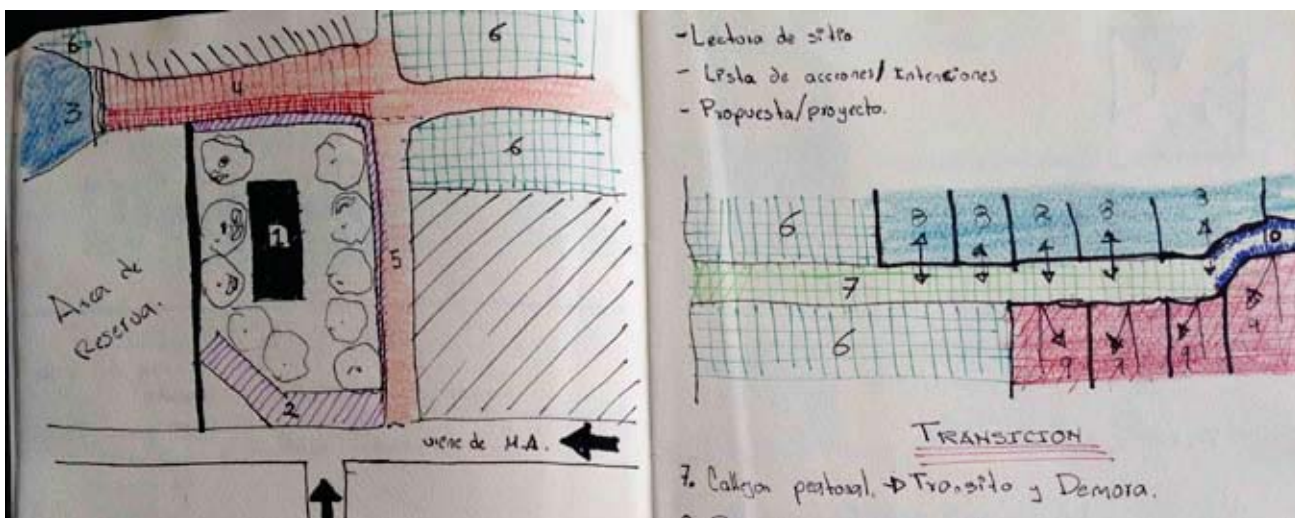 6
6
4
3
6
1
5
Area de
Reserva.
2
viene de M.A.
- Lectura de sitio
- Lista de acciones/Intenciones
- Propuesta/proyecto.
6
3
3
3
3
7
6
9
9
TRANSICION
7. Callejon peatonal. → Transito y Demora.